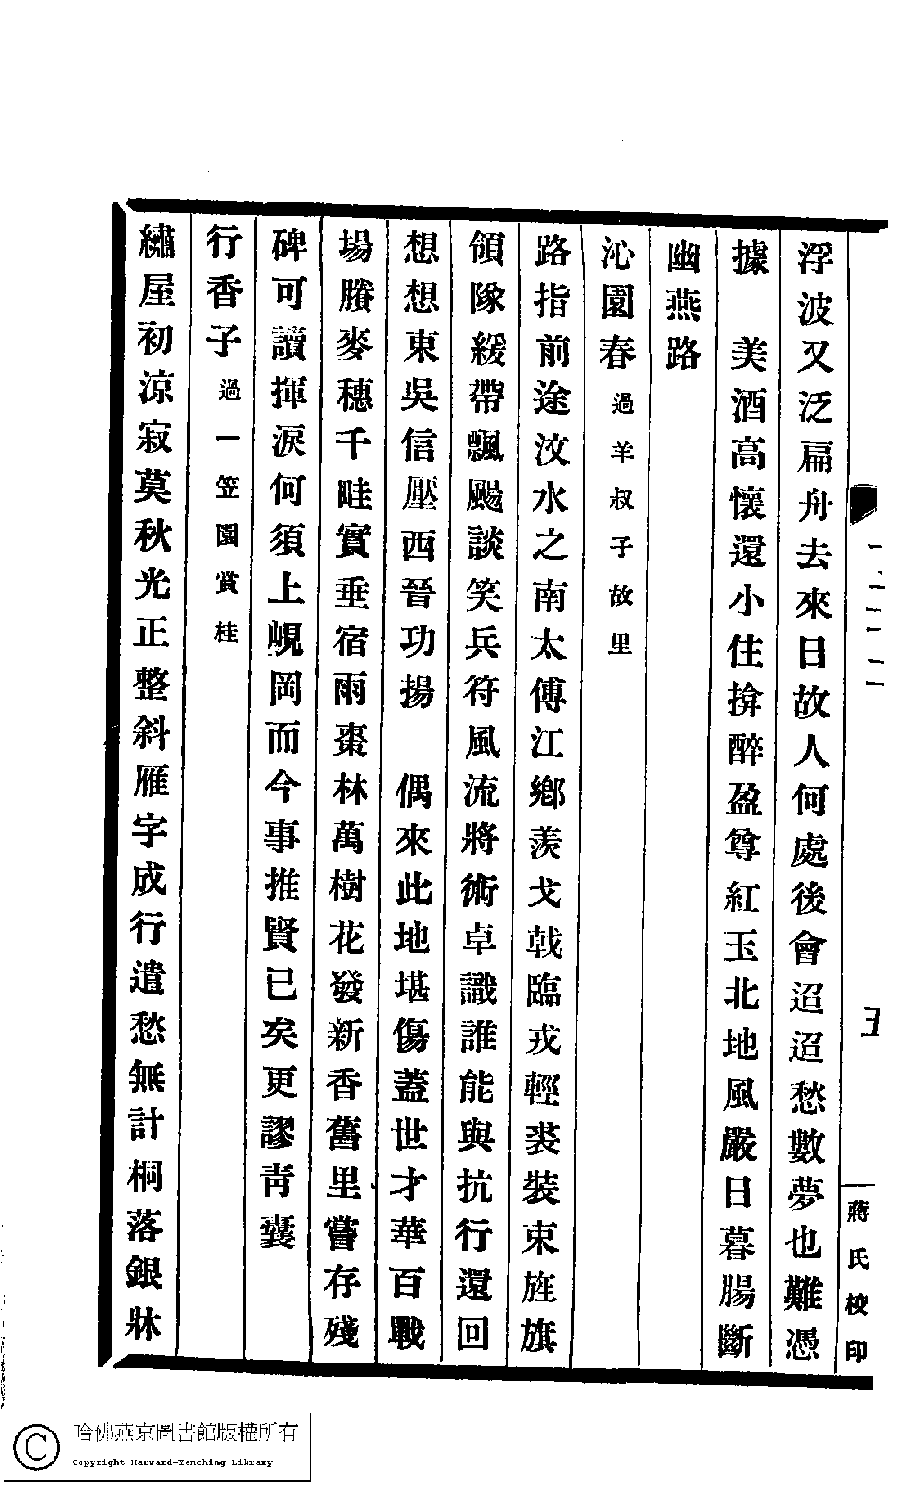 浮波又泛扁舟去來日故人何處後會迢迢愁數夢也難憑
據　美酒高懷還小住拚醉盈尊紅玉北地風嚴日暮腸斷
幽燕路
沁園春 過羊叔子故里
路指前途汶水之南太傅江鄉羨戈戟臨戎輕裘裝束旌旗
領隊緩帶飄颺談笑兵符風流將術卓識誰能與抗行還回
想想東吳信壓西晉功揚　偶來此地堪傷蓋世才華百戰
場賸麥穗千畦實垂宿雨棗林萬樹花發新香舊里嘗存殘
碑可讀揮淚何須上峴岡而今事推賢已矣更謬靑囊
行香子 過一笠園賞桂
繡屋初涼寂莫秋光正整斜雁字成行遣愁無計桐落銀牀
蔣氏校印
哈佛燕京圖書館版權所有
Copyright Harvard-Yenching Library